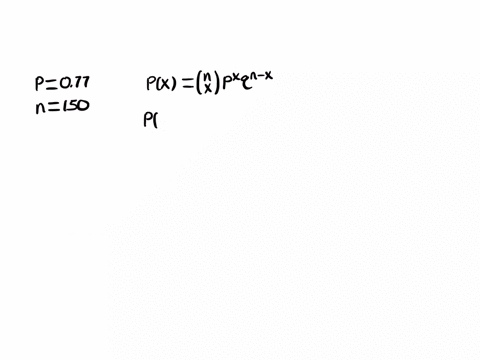 P=0.77
n=150
P(x) = (n x) P^x q^n-x
P(